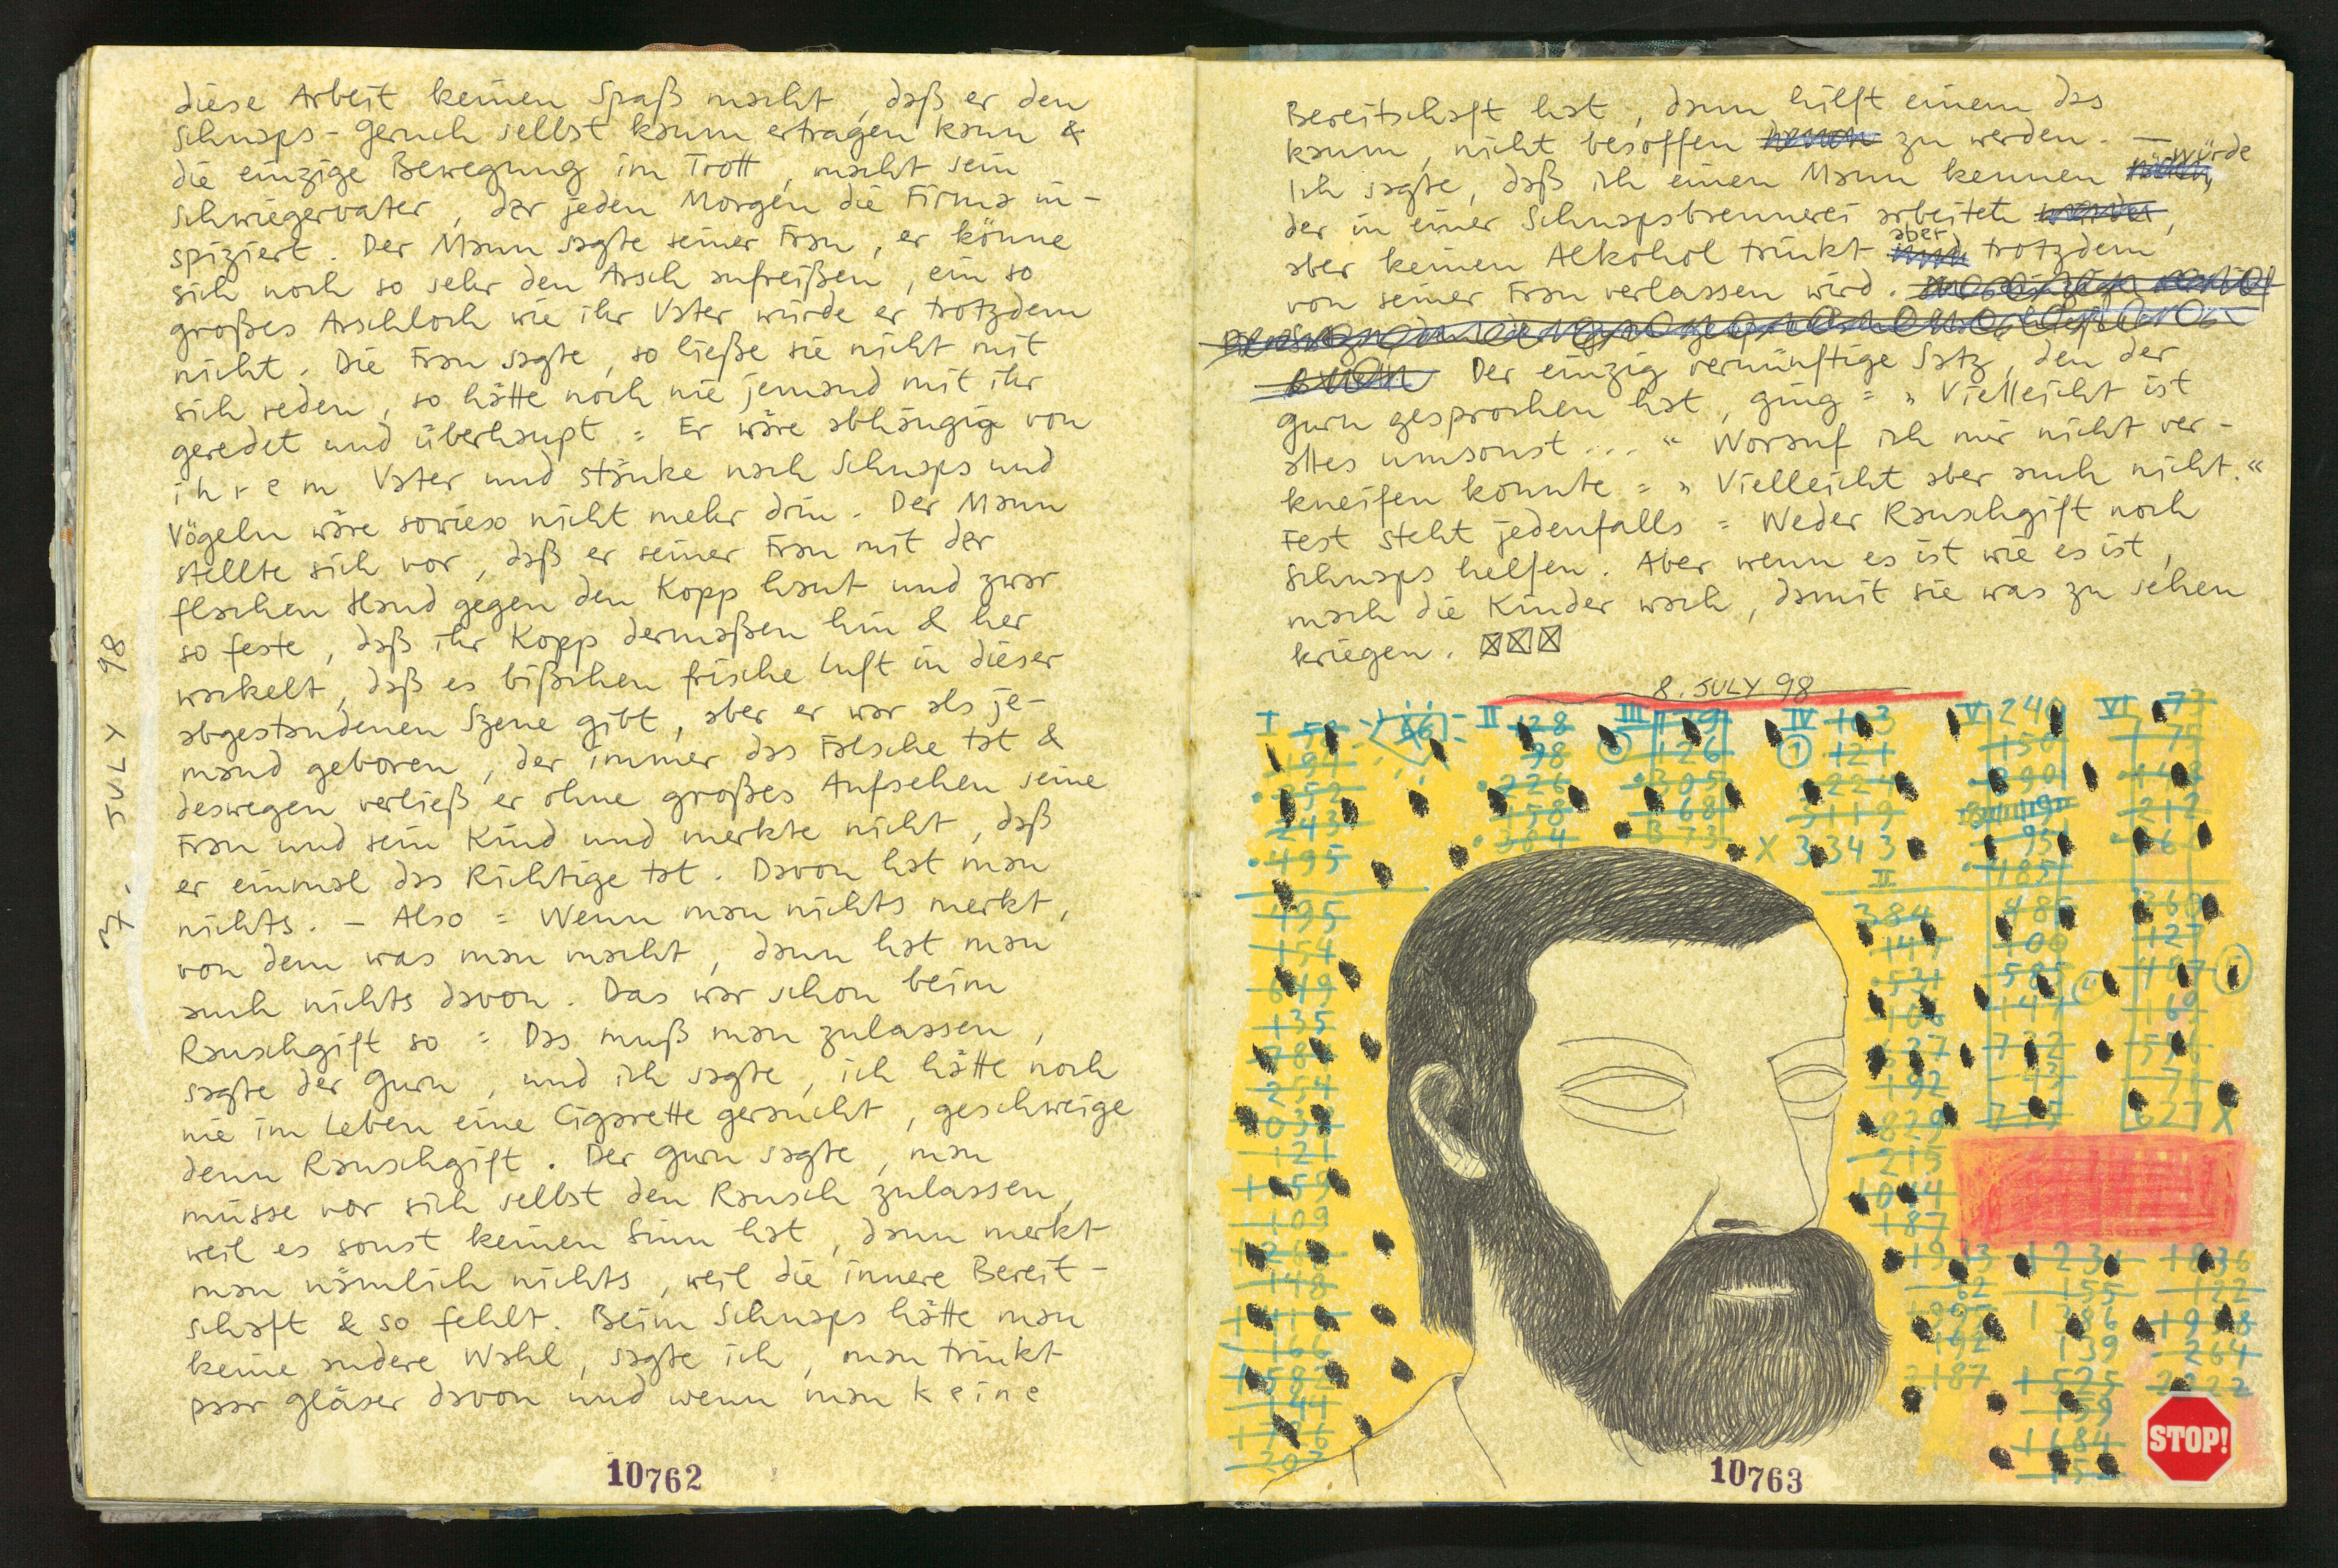 diese Arbeit keinen Spaß macht, daß er den
Schnaps-Geruch selbst kaum ertragen kann &
die einzige Bewegung im Trott, macht sein
Schwiegervater, der jeden Morgen die Firma in-
spiziert. Der Mann sagte seiner Frau, er könne
sich noch so sehr den Arsch aufreißen, ein so
großes Arschloch wie ihr Vater würde er trotzdem
nicht. Die Frau sagte, so ließe sie nicht mit
sich reden, so hätte noch nie jemand mit ihr
geredet und überhaupt = Er wäre abhängig von
i h r e m Vater und stänke nach Schnaps und
Vögeln wäre sowieso nicht mehr drin. Der Mann
stellte sich vor, daß er seiner Frau mit der
flachen Hand gegen den Kopp haut und zwar
so feste, daß ihr Kopp dermaßen hin & her
wackelt, daß es bißchen frische Luft in dieser
abgestandenen Szene gibt, aber er war als je-
mand geboren, der immer das Falsche tat &
deswegen verließ er ohne großes Aufsehen seine
Frau und sein Kind und merkte nicht, daß
er einmal das Richtige tat. Davon hat man
nichts. – Also = Wenn man nichts merkt,
von dem was man macht, dann hat man
auch nichts davon. Das war schon beim
Rauschgift so = Das muß man zulassen,
sagte der Guru, und ich sagte, ich hätte noch
nie im Leben eine Cigarette geraucht, geschweige
denn Rauschgift. Der Guru sagte, man
müsse vor sich selbst den Rausch zulassen,
weil es sonst keinen Sinn hat, dann merkt
man nämlich nichts, weil die innere Bereit-
schaft & so fehlt. Beim Schnaps hätte man
keine andere Wahl, sagte ich, man trinkt
paar Gläser davon und wenn man k e i n e
7. JULY 98
10762
Bereitschaft hat, dann hilft einem das
kaum, nicht besoffen zu werden. —
Ich sagte, daß ich einen Mann kennen würde
der in einer Schnapsbrennerei arbeitet,
aber keinen Alkohol trinkt aber trotzdem
von seiner Frau verlassen wird.
Der einzig vernünftige Satz, den der
Guru gesprochen hat, ging = „Vielleicht ist
alles umsonst ... “ Worauf ich mir nicht ver-
kneifen konnte = „Vielleicht aber auch nicht.“
Fest steht jedenfalls = Weder Rauschgift noch
Schnaps helfen. Aber wenn es ist wie es ist,
mach die Kinder wach, damit sie was zu sehen
kriegen. ☒☒☒
8. JULY 98
I II III IV V VI
128 103 240 73
98 126 121 150 75
226 305 224
243 158 68 3119 212
495 384 373 X 3343 95
II
495
384
154 147 100 127
649 585 487
135
192
627 X
215
187
155 122
264
3187
STOP!
10763